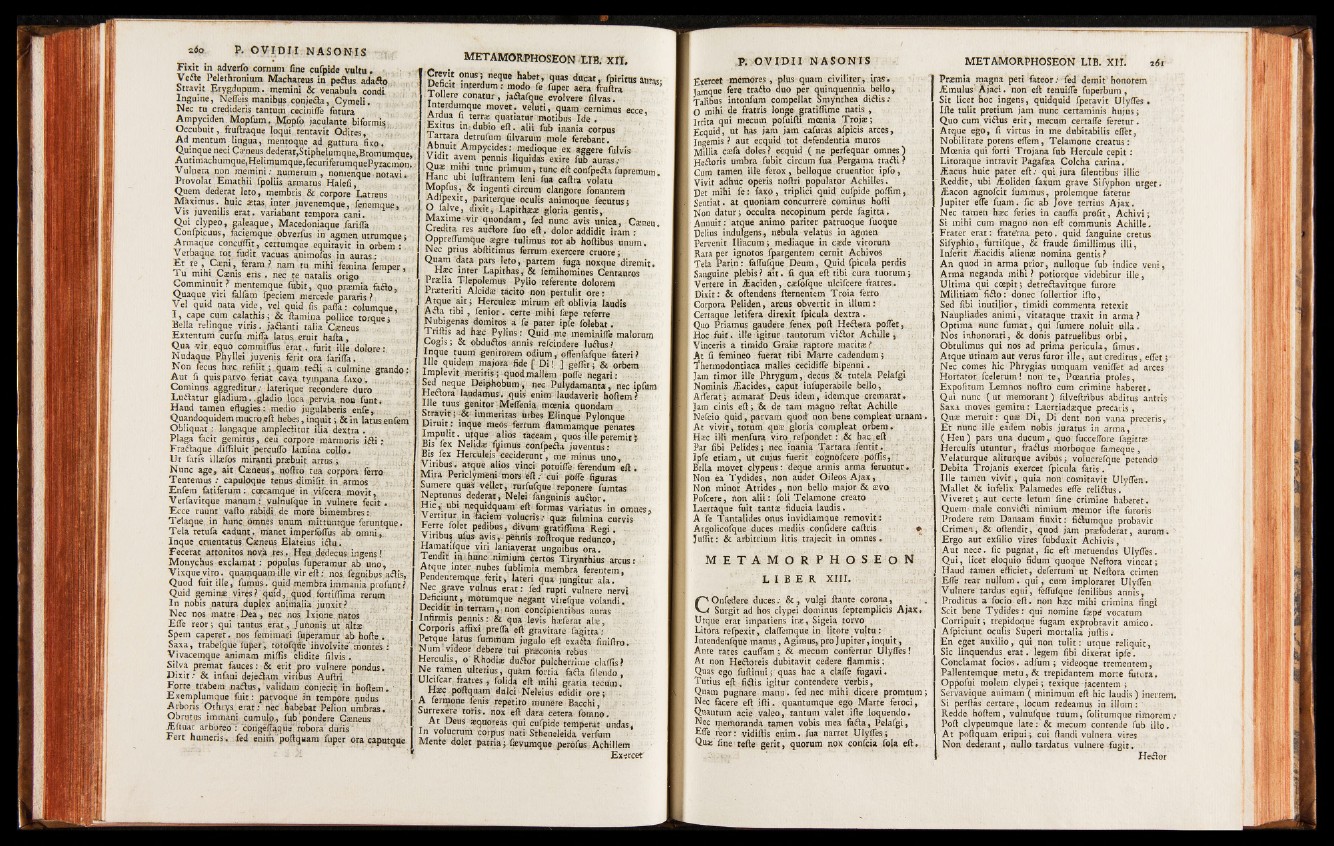 260 P. OVIDII NASONIS
Fixit in adverso cornum sine cuspide vultu.
Vecte Pelethronium Machareus in pectus adacto
Stravit Erygdupum. memini & venabula condi
Inguine, Nesseis manibus conjecta, Cymeli.
Nec tu credideris tantum cecinisse futura
Ampyciden Mopsum, Mopso jaculante biformis
Occubuit, frustraque loqui tentavit Odites,
Ad mentum lingua, mentoque ad guttura fixo.
Quinque neci Cæneus dederat, Stiphelumque, Bromumque,
Antimachumque, Helimumque, securiferumque Pyracmon.
Vulnera non memini: numerum, nomenque notavi.
Provolat Emathii spoliis armatus Halesi,
Quem dederat leto, membris & corpore Latreus
Maximus. huic ætas inter juvenemque, senemque,
Vis juvenilis erat. variabant tempora cani.
Qui clypeo, galeaque, Macedoniaque sarissa
Conspicuus, faciemque obversus in agmen utrumque;
Armaque concussit, certumque equitavit in orbem:
Verbaque tot fudit vacuas animosus in auras:
Et te, Cæni, feram? nam tu mihi femina semper,
Tu mihi Cænis eris. nec te natalis origo
Comminuit? mentemque subit, quo præmia facto,
Quaque viri falsam speciem mercede pararis?
Vel quid nata vide, vel quid sis passa: columque,
I, cape cum calathis; & stamina pollice torque;
Bella relinque viris. jactanti talia Cæneus
Extentum cursu missa latus eruit hasta,
Qua vir equo commissus erat. furit ille dolore:
Nudaque Phyllei juvenis ferit ora sarissa.
Non secus hæc resilit; quam tecti a culmine grando:
Aut si quis parvo feriat cava tympana saxo.
Cominus aggreditur: laterique recondere duro
Luctatur gladium. gladio loca pervia non sunt.
Haud tamen effugies: medio jugulaberis ense,
Quandoquidem mucro est hebes, inquit; & in latus ensem
Obliquat: longaque amplectitur ilia dextra.
Plaga facit gemitus, ceu corpore marmoris icti:
Fractaque dissiluit percusso lamina collo.
Ut satis illæsos miranti præbuit artus;
Nunc age, ait Cæneus, nostro tua corpora ferro
Tentemus: capuloque tenus dimisit in armos
Ensem fatiferum: cœcamque in viscera movit,
Versavitque manum: vulnusque in vulnere fecit.
Ecce ruunt vasto rabidi de more bimembres:
Telaque in hunc omnes unum mittuntque feruntque.
Tela retusa cadunt, manet imperfossus ab omni,
Inque cruentatus Cæneus Elateius ictu.
Fecerat attonitos nova res. Heu dedecus ingens!
Monychus exclamat: populus superamur ab uno,
Vixque viro. quamquam ille vir est: nos segnibus actis,
Quod fuit ille, sumus. quid membra immania prosunt?
Quid geminæ vires? quid, quod fortissima rerum
In nobis natura duplex animalia junxit?
Nec nos matre Dea, nec nos Ixione natos
Esse reor; qui tantus erat, Junonis ut altæ
Spem caperet. nos semimari superamur ab hoste.
Saxa, trabesque super, totosque involvite montes:
Vivacemque animam missis elidite silvis.
Silva premat fauces: & erit pro vulnere pondus.
Dixit: & insani dejectam viribus Austri
Forte trabem nactus, validum conjecit in hostem.
Exemplumque fuit: parvoque in tempore nudus
Arboris Othrys erat: nec habebat Pelion umbras.
Obrutus immani cumulo, sub pondere Cæneus
Æstuat arboreo: congestaque robora duris
Fert humeris. sed enim postquam super ora caputque
METAMORPHOSEON LIB. XII.
Crevit onus; neque habet, quas ducat, spiritus auras;
Deficit interdum: modo se super aera frustra
Tollere conatur, jactasque evolvere silvas.
Interdumque movet. veluti, quam cernimus ecce,
Ardua si terræ quatiatur motibus Ide.
Exitus in dubio est. alii sub inania corpus
Tartara detrusum silvarum mole ferebant.
Abnuit Ampycides: medioque ex aggere fulvis
Vidit avem pennis liquidas exire sub auras:
Quæ mihi tunc primum, tunc est conspecta supremum.
Hanc ubi lustrantem leni sua castra volatu
Mopsus, & ingenti circum clangore sonantem
Adspexit, pariterque oculis animoque secutus;
O salve, dixit, Lapithææ gloria gentis,
Maxime vir quondam, sed nunc avis unica, Cæneu.
Credita res auctore suo est. dolor addidit iram:
Oppressumque ægre tulimus tot ab hostibus unum.
Nec prius abstitimus ferrum exercere cruore;
Quam data pars leto, partem fuga noxque diremit.
Hæc inter Lapithas, & semihomines Centauros
Prælia Tlepolemus Pylio referente dolorem
Præteriti Alcidæ tacito non pertulit ore:
Atque ait; Herculeæ mirum est oblivia laudis
Acta tibi, senior. certe mihi sæpe referre
Nubigenas domitos a se pater ipse solebat.
Tristis ad hæc Pylius: Quid me meminisse malorum
Cogis; & obductos annis rescindere luctus?
Inque tuum genitorem odium, offensasque fateri?
Ille quidem majora fide [ Di! ] gessit; & orbem
Implevit meritis; quod mallem posse negari:
Sed neque Deiphobum, nec Pulydamanta, nec ipsum
Hectora laudamus. quis enim laudaverit hostem?
Ille tuus genitor Messenia mœnia quondam
Stravit; & immeritas urbes Elinque Pylonque
Diruit: inque meos ferrum flammamque penates
Impulit. utque alios taceam, quos ille peremit;
Bis sex Nelidæ fuimus conspecta juventus:
Bis sex Herculeis ceciderunt, me minus uno,
Viribus. atque alios vinci potuisse ferendum est.
Mira Periclymeni mors est: cui posse figuras
Sumere quas vellet, rursusque reponere sumtas
Neptunus dederat, Nelei sanguinis auctor.
Hic, ubi nequidquam est formas variatus in omnes,
Vertitur in faciem volucris: quæ fulmina curvis
Ferre solet pedibus, divum gratissima Regi.
Viribus usus avis, pennis rostroque redunco,
Hamatisque viri laniaverat unguibus ora.
Tendit in hunc nimium certos Tirynthius arcus:
Atque inter nubes sublimia membra ferentem,
Pendentemque ferit, lateri qua jungitur ala.
Nec grave vulnus erat: sed rupti vulnere nervi
Deficiunt, motumque negant viresque volandi.
Decidit in terram, non concipientibus auras
Infirmis pennis: & qua levis hæserat alæ,
Corporis affixi pressa est gravitate sagitta:
Perque latus summum jugulo est exacta sinistro.
Num videor debere tui præconia rebus
Herculis, o Rhodiæ ductor pulcherrime classis?
Nec tamen ulterius, quam fortia facta silendo,
Ulciscar fratres, solida est mihi gratia tecum.
Hæc postquam dulci Neleius edidit ore;
A sermone senis repetito munere Bacchi,
Surrexere toris. nox est data cetera somno.
At Deus æquoreas qui cuspide temperat undas,
In volucrum corpus nati Stheneleida versum
Mente dolet patria; sævumque perosus Achillem
Exercet
P. OVIDII NASONIS
Exercet memores, plus quam civiliter, iras.
Jamque fere tracto duo per quinquennia bello,
Talibus intonsum compellat Smynthea dictis:
O mihi de fratris longe gratissime natis,
Irrita qui mecum posuisti mœnia Trojæ;
Ecquid, ut has jam jam casuras aspicis arces,
Ingemis? aut ecquid tot defendentia muros
Millia cæsa doles? ecquid ( ne persequar omnes )
Hectoris umbra subit circum sua Pergama tracti?
Cum tamen ille ferox, belloque cruentior ipso,
Vivit adhuc operis nostri populator Achilles.
Det mihi se: faxo, triplici quid cuspide possim,
Sentiat. at quoniam concurrere cominus hosti
Non datur; occulta necopinum perde sagitta.
Annuit: atque animo pariter patruoque suoque
Delius indulgens, nebula velatus in agmen
Pervenit Iliacum; mediaque in cæde virorum
Rara per ignotos spargentem cernit Achivos
Tela Parin: fassusque Deum, Quid spicula perdis
Sanguine plebis? ait. si qua est tibi cura tuorum;
Vertere in Æaciden, cæsosque ulciscere fratres.
Dixit: & ostendens sternentem Troia ferro
Corpora Peliden, arcus obvertit in illum:
Certaque letifera direxit spicula dextra.
Quo Priamus gaudere senex post Hectora posset,
Hoc fuit. ille igitur tantorum victor Achille,
Vinceris a timido Graiæ raptore maritæ?
At si femineo fuerat tibi Marte cadendum;
Thermodontiaca malles cecidisse bipenni.
Jam timor ille Phrygum, decus & tutela Pelasgi
Nominis Æacides, caput insuperabile bello,
Arserat; armarat Deus idem, idemque cremarat.
Jam cinis est; & de tam magno restat Achille
Nescio quid, parvam quod non bene compleat urnam.
At vivit, totum quæ gloria compleat orbem.
Hæc illi mensura viro respondet: & hac est
Par sibi Pelides; nec inania Tartara sentit.
Ipse etiam, ut cujus fuerit cognoscere possis,
Bella movet clypeus: deque armis arma feruntur.
Non ea Tydides, non audet Oileos Ajax,
Non minor Atrides, non bello major & ævo
Poscere, non alii: soli Telamone creato
Laertaque fuit tantæ fiducia laudis.
A se Tantalides onus invidiamque removit:
Argolicosque duces mediis considere castris
Jussit: & arbitrium litis trajecit in omnes.
METAMORPHOSEON
LIBER XIII.
COnsedere duces: &, vulgi stante corona,
Surgit ad hos clypei dominus septemplicis Ajax.
Utque erat impatiens iræ, Sigeia torvo
Litora respexit, classemque in litore vultu:
Intendensque manus, Agimus, pro Jupiter, inquit,
Ante rates caussam; & mecum confertur Ulysses!
At non Hectoreis dubitavit cedere flammis:
Quas ego sustinui; quas hac a classe fugavi.
Tutius est fictis igitur contendere verbis,
Quam pugnare manu. sed nec mihi dicere promtum;
Nec facere est isti. quantumque ego Marte feroci,
Quantum acie valeo, tantum valet iste loquendo.
Nec memoranda tamen vobis mea facta, Pelasgi,
Esse reor: vidistis enim. sua narret Ulysses;
Quæ sine teste gerit, quorum nox conscia sola est.
METAMORPHOSEON LIB. XII. 261
Præmia magna peti fateor: sed demit honorem
Æmulus Ajaci. non est tenuisse superbum,
Sit licet hoc ingens, quidquid speravit Ulysses.
Iste tulit pretium jam nunc certaminis hujus;
Quo cum victus erit, mecum certasse feretur.
Atque ego, si virtus in me dubitabilis esset,
Nobilitate potens essem, Telamone creatus:
Mœnia qui forti Trojana sub Hercule cepit:
Litoraque intravit Pagasæa Colcha carina.
Æacus huic pater est: qui jura silentibus illic
Reddit, ubi Æoliden saxum grave Sisyphon urget.
Æacon agnoscit summus, prolemque fatetur
Jupiter esse suam. sic ab Jove tertius Ajax.
Nec tamen hæc series in caussa prosit, Achivi;
Si mihi cum magno non est communis Achille.
Frater erat: fraterna peto. quid sanguine cretus
Sisyphio, furtisque, & fraude simillimus illi,
Inserit Æacidis alienæ nomina gentis?
An quod in arma prior, nulloque sub indice veni,
Arma neganda mihi? potiorque videbitur ille,
Ultima qui cœpit; detrectavitque furore
Militiam ficto: donec sollertior isto,
Sed sibi inutilior, timidi commenta retexit
Naupliades animi, vitataque traxit in arma?
Optima nunc sumat, qui sumere noluit ulla.
Nos inhonorati, & donis patruelibus orbi,
Obtulimus qui nos ad prima pericula, simus.
Atque utinam aut verus furor ille, aut creditus, esset;
Nec comes hic Phrygias umquam venisset ad arces
Hortator scelerum! non te, Pœantia proles,
Expositum Lemnos nostro cum crimine haberet.
Qui nunc ( ut memorant ) silvestribus abditus antris
Saxa moves gemitu: Laertiadæque precaris,
Quæ meruit: quæ Di, Di dent non vana preceris,
Et nunc ille eadem nobis juratus in arma,
( Heu ) pars una ducum, quo successore sagittæ
Herculis utuntur, fractus morboque fameque,
Velaturque aliturque avibus; volucresque petendo
Debita Trojanis exercet spicula fatis.
Ille tamen vivit, quia non comitavit Ulyssen.
Mallet & infelix Palamedes esse relictus.
Viveret; aut certe letum sine crimine haberet.
Quem male convicti nimium memor iste furoris
Prodere rem Danaam finxit: fictumque probavit
Crimen, & ostendit, quod jam præfoderat, aurum.
Ergo aut exsilio vires subduxit Achivis,
Aut nece. sic pugnat, sic est metuendus Ulysses.
Qui, licet eloquio fidum quoque Nestora vincat;
Haud tamen efficiet, desertum ut Nestora crimen
Esse rear nullum. qui, cum imploraret Ulyssen
Vulnere tardus equi, fessusque senilibus annis,
Proditus a socio est. non hæc mihi crimina fingi
Scit bene Tydides: qui nomine sæpe vocatum
Corripuit; trepidoque fugam exprobravit amico.
Aspiciunt oculis Superi mortalia justis.
En eget auxilio, qui non tulit: utque reliquit,
Sic linquendus erat. legem sibi dixerat ipse.
Conclamat socios. adsum; videoque trementem,
Pallentemque metu, & trepidantem morte futura.
Opposui molem clypei; texique jacentem;
Servavique animam ( minimum est hic laudis ) inertem.
Si perstas certare, locum redeamus in illum:
Redde hostem, vulnusque tuum, solitumque timorem:
Post clypeumque late: & mecum contende sub illo.
At postquam eripui; cui standi vulnera vires
Non dederant, nullo tardatus vulnere fugit.
Hector